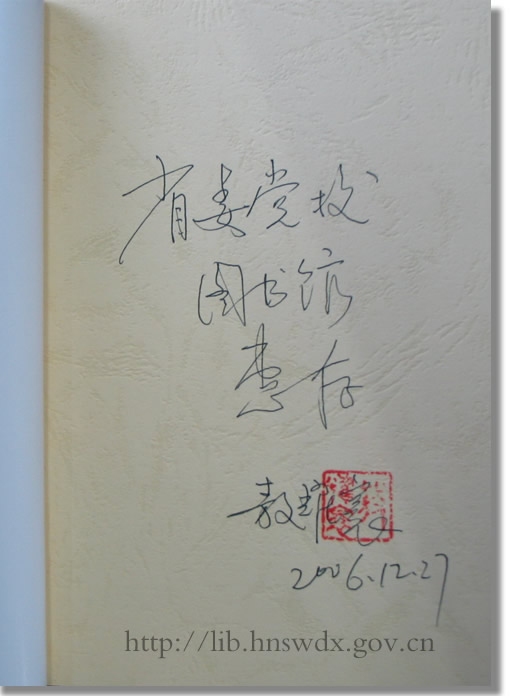 省委党校
图书馆
惠存
敖
2006.12.27
http://lib.hnswdx.gov.cn